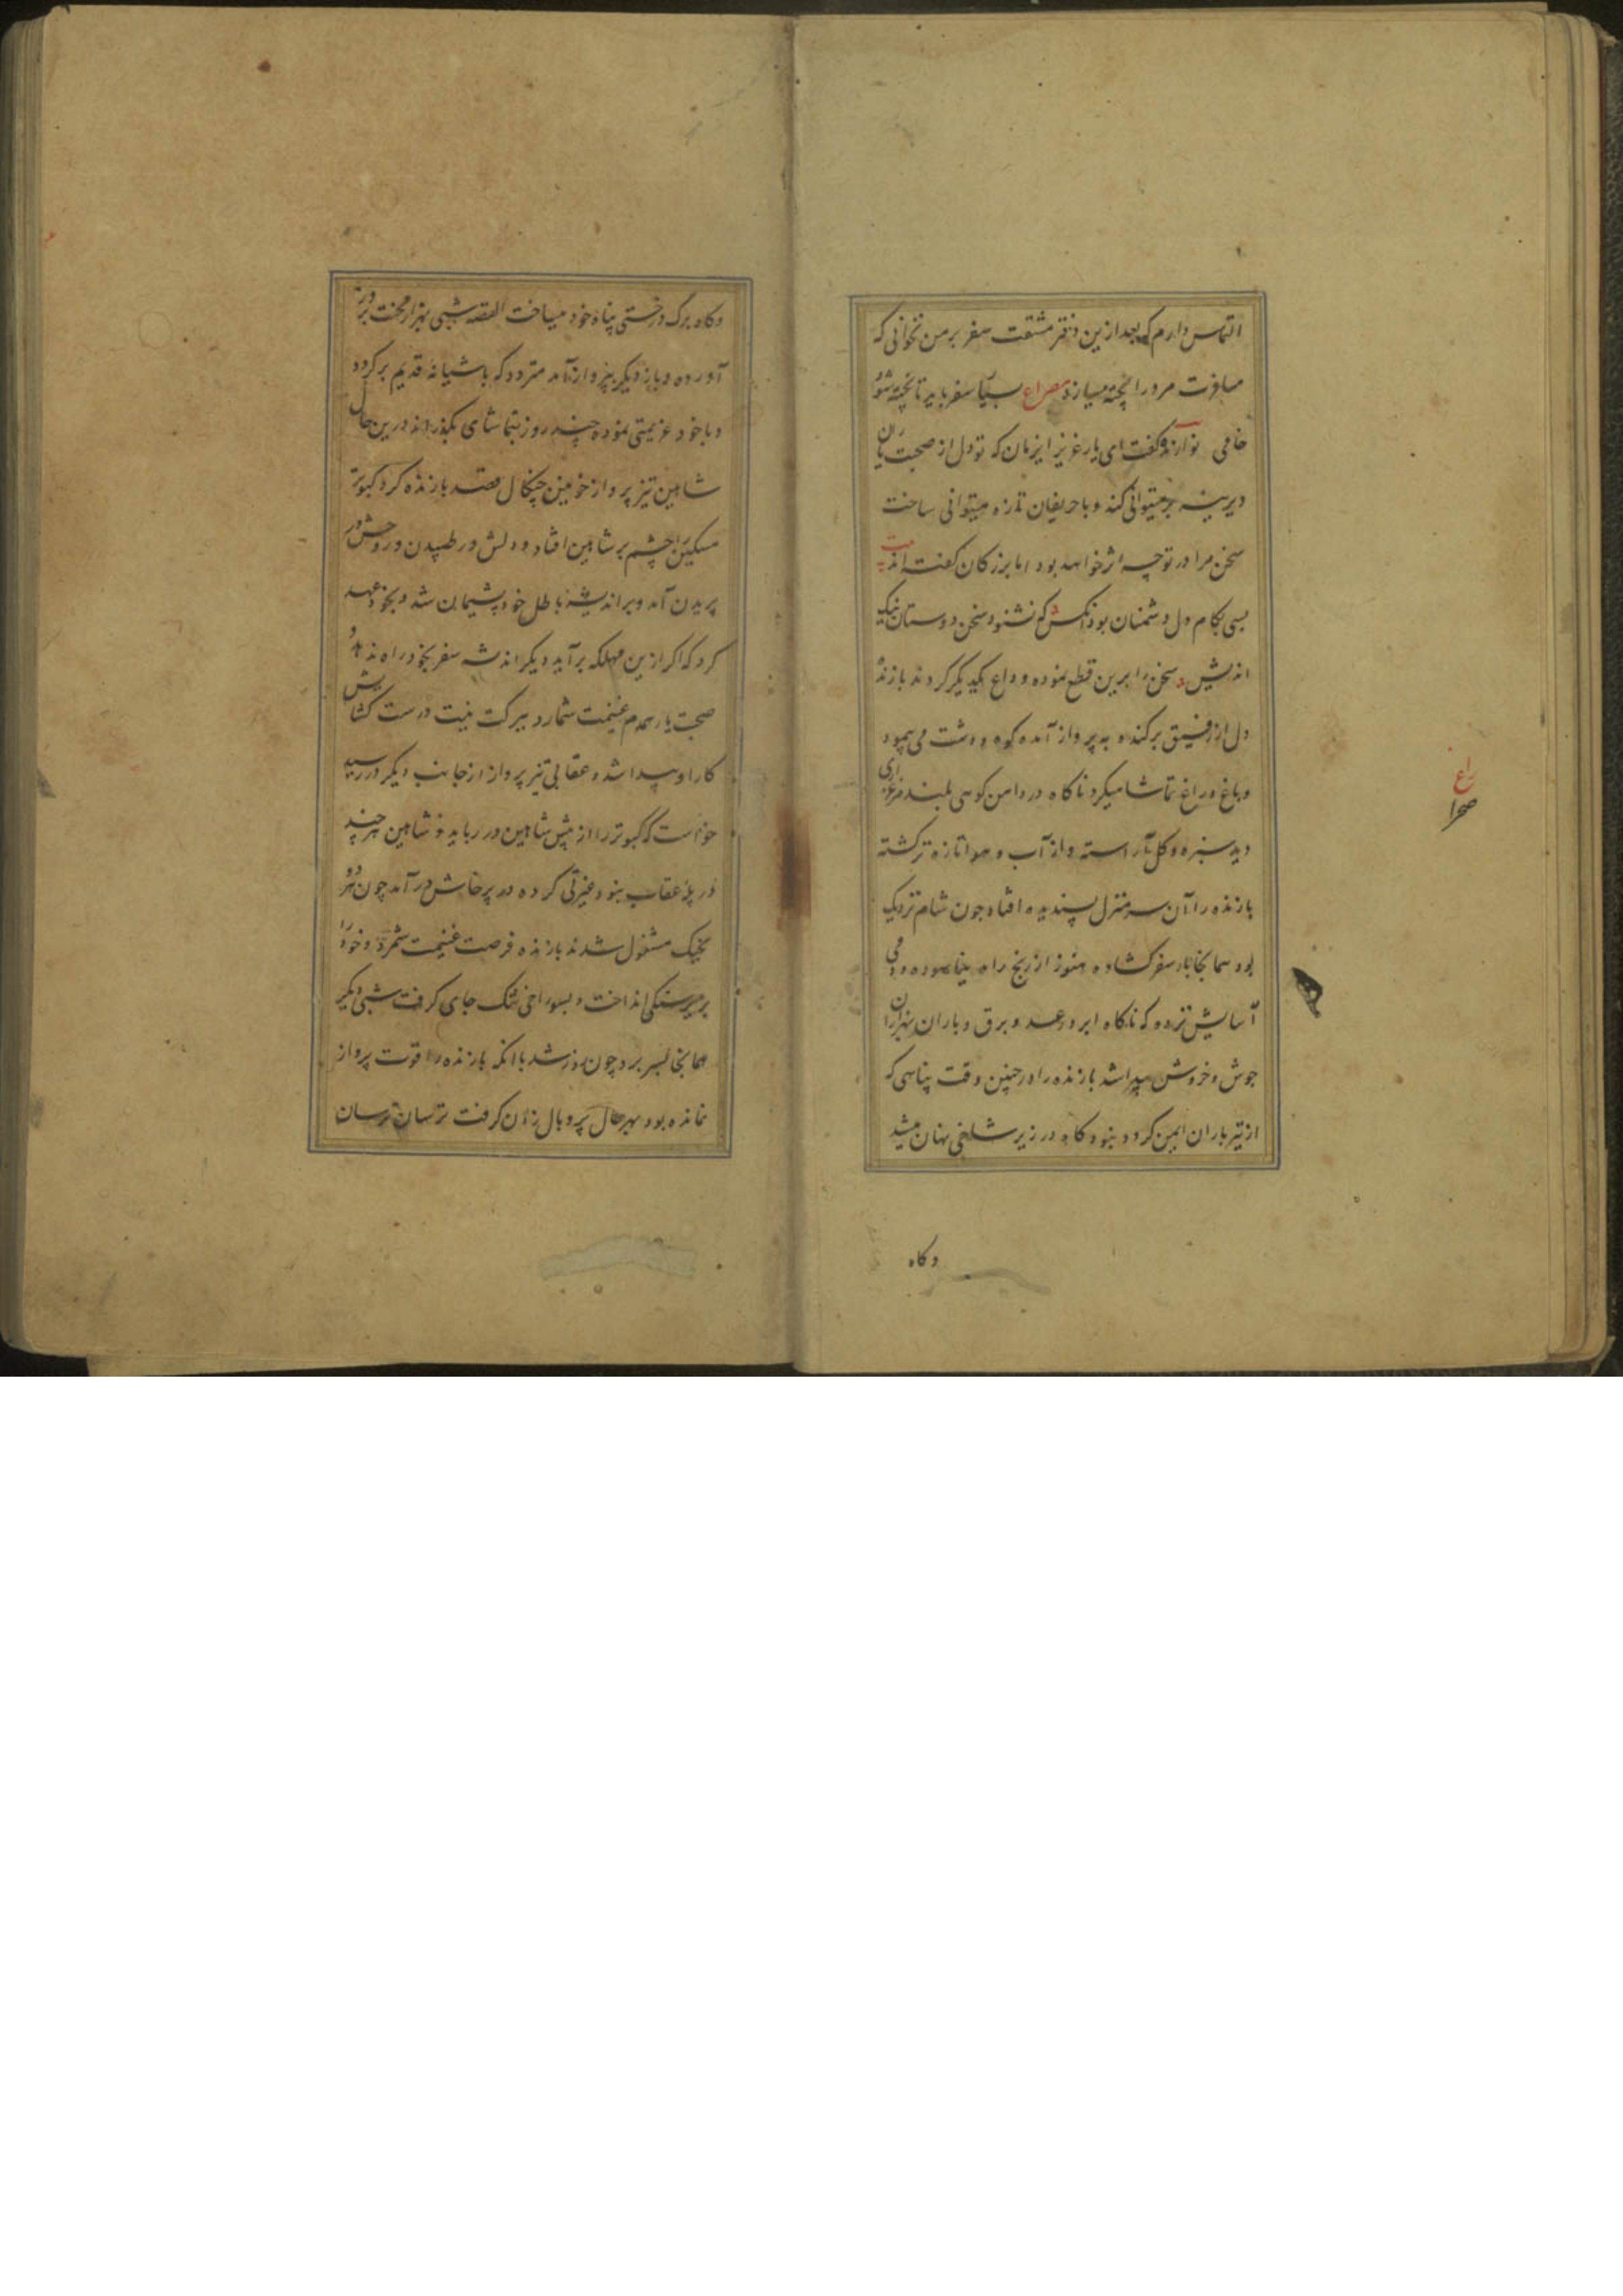 التماس دارم که بعد ازین دفتر مشقت سفر بر من نخوانی که
مسافرت مرد را پخته میسازد مصراع بسیار سفر باید تا پخته شود
خامی نوازنده گفت ای یار عزیز این زمان که تو دل از صحبت یاران
دیرینه بر میتوانی کند و با حریفان تازه میتوانی ساخت
سخن مرا در تو چه اثر خواهد بود اما بزرکان گفته اند بیت
بسی بکام دل دشمنان بود آنکس که نشنود سخن دوستان نیک
اندیش سخن را برین قطع نموده وداع یکدیگر کردند بازنده
دل از رفیق برکنده به پرواز آمده کوه و دشت می پیمود
و باغ و راغ تماشا میکرد ناکاه در دامن کوهی بلند مرغزاری
دید سبزه و کل آراسته و از آب و هوا تازه تر کشته
بازنده را آن سر منزل پسندیده افتاد چون شام نزدیک
بود همانجا بار سفر کشاد و هنوز از رنج راه نیاسوده و دمی
آسایش نزده که ناکاه ابر و رعد و برق و باران هزاران
جوش و خروش پیدا شد بازنده را در چنین وقت پناهی که
از تیر باران ایمن کردد نبود کاه در زیر شاخی پنهان میشد
راغ
صحرا
و کاه
و کاه برک درختی پناه خود میساخت القصه شبی بهزار محنت بروز
آورده و باز دیکر بپرواز آمد متردد که باشیانه قدیم برکردد
و با خود عزیمتی نموده چند روز بتماشای بکذراند درین حال
شاهین تیز پرواز خونین چنکال قصد بازنده کرد کبوتر
مسکین را چشم بر شاهین افتاد و دلش در طپیدن و روحش در
پریدن آمد و بر اندیشه باطل خود پشیمان شد و بخود عهد
کرد که اکر ازین مهلکه برآید دیکر اندیشه سفر بخود راه ندهد و
صحبت یار همدم غنیمت شمارد ببرکت نیت درست کشایش
کار او پیدا شد و عقابی تیز پرواز از جانب دیکر در رسید
خواست که کبوتر را از پیش شاهین در رباید و شاهین هر چند
در پله عقاب نبود غیرتی کرده در پرخاش در آمد چون هر دو
بجنک مشغول شدند بازنده فرصت غنیمت شمرده و خود را
بزیر سنکی انداخت و بسوراخی تنک جای کرفت شبی دیکر
همانجا بسر برد چون روز شد با آنکه بازنده را قوت پرواز
نمانده بود بهر حال پر و بال زدن کرفت ترسان ترسان